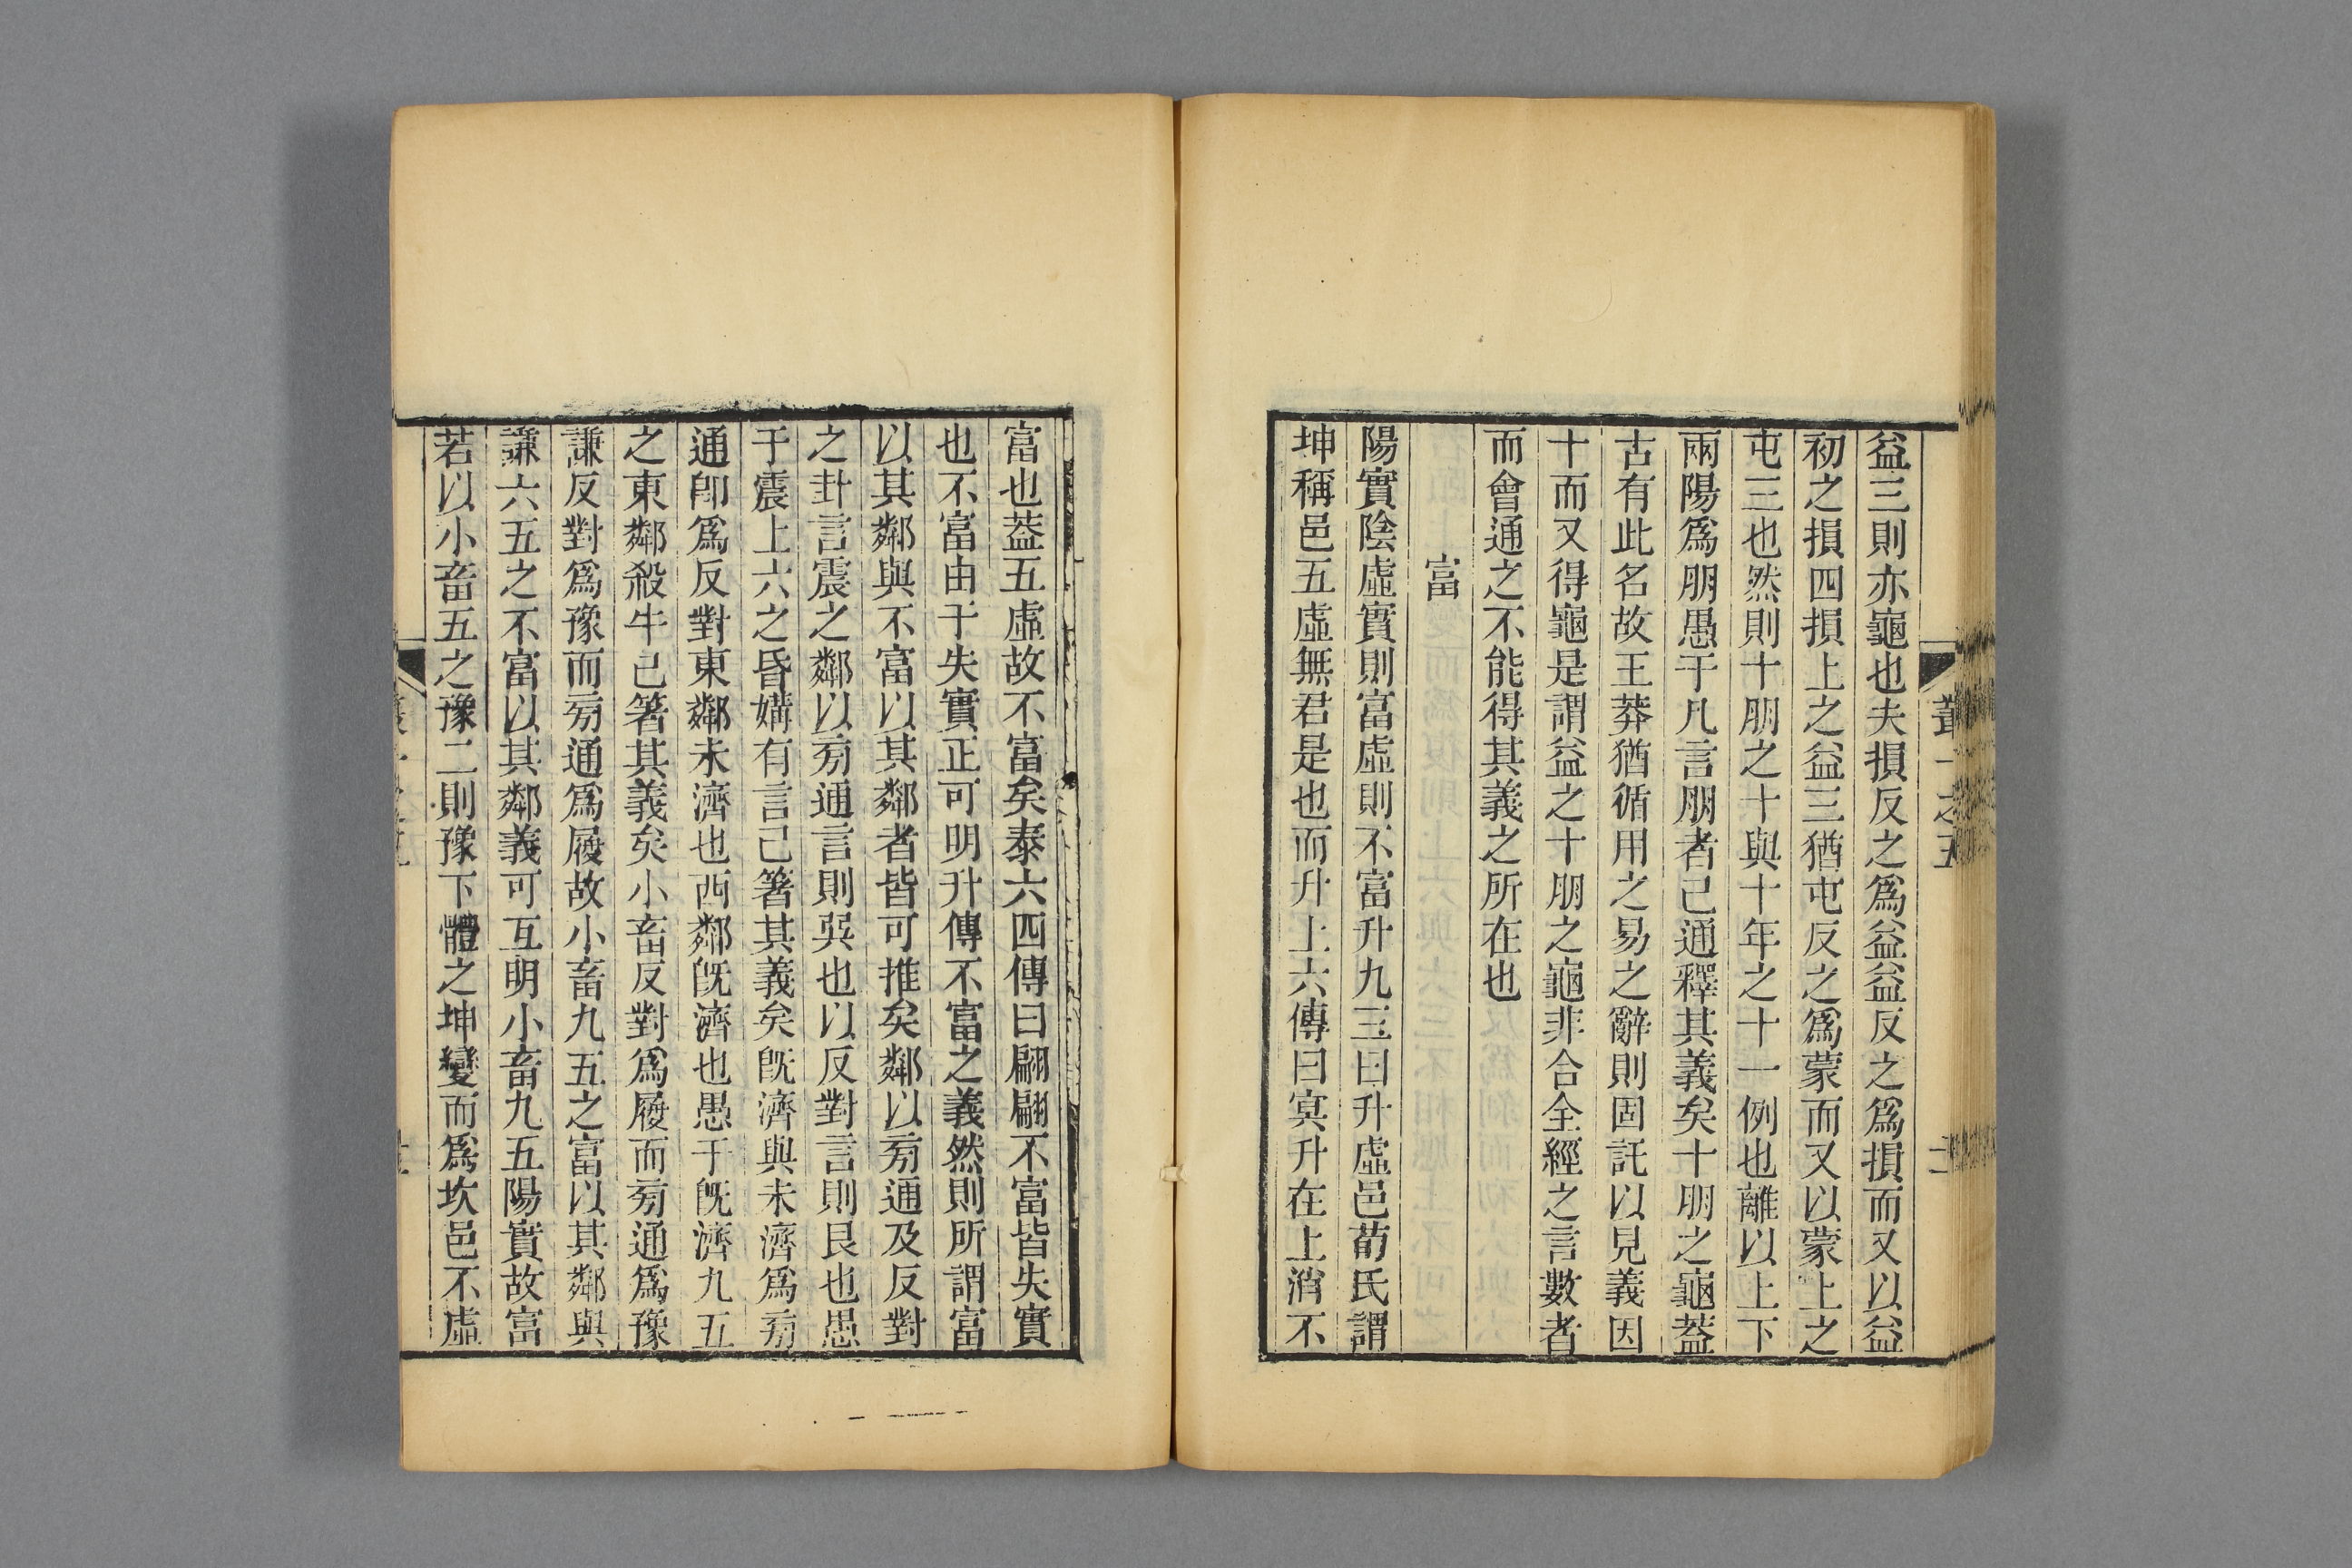 益三則亦龜也夫損反之爲益益反之爲損而又以益
初之損四損上之益三猶屯反之爲蒙而又以蒙上之
屯三也然則十朋之十與十年之十一例也離以上下
兩陽爲朋愚于凡言朋者已通釋其義矣十朋之龜蓋
古有此名故王莽猶循用之易之辭則固託以見義因
十而又得龜是謂益之十朋之龜非合全經之言數者
而會通之不能得其義之所在也
富
陽實陰虛實則富虛則不富升九三曰升虛邑荀氏謂
坤稱邑五虛無君是也而升上六傳曰冥升在上消不
富也葢五虛故不富矣泰六四傳曰翩翩不富皆失實
也不富由于失實正可明升傳不富之義然則所謂富
以其鄰與不富以其鄰者皆可推矣鄰以旁通及反對
之卦言震之鄰以旁通言則巽也以反對言則艮也愚
于震上六之昏媾有言已箸其義矣旣濟與未濟爲旁
通卽爲反對東鄰未濟也西鄰旣濟也愚于旣濟九五
之東鄰殺牛已箸其義矣小畜反對爲履而旁通爲豫
謙反對爲豫而旁通爲履故小畜九五之富以其鄰與
謙六五之不富以其鄰義可互明小畜九五陽實故富
若以小畜五之豫二則豫下體之坤變而爲坎邑不虛